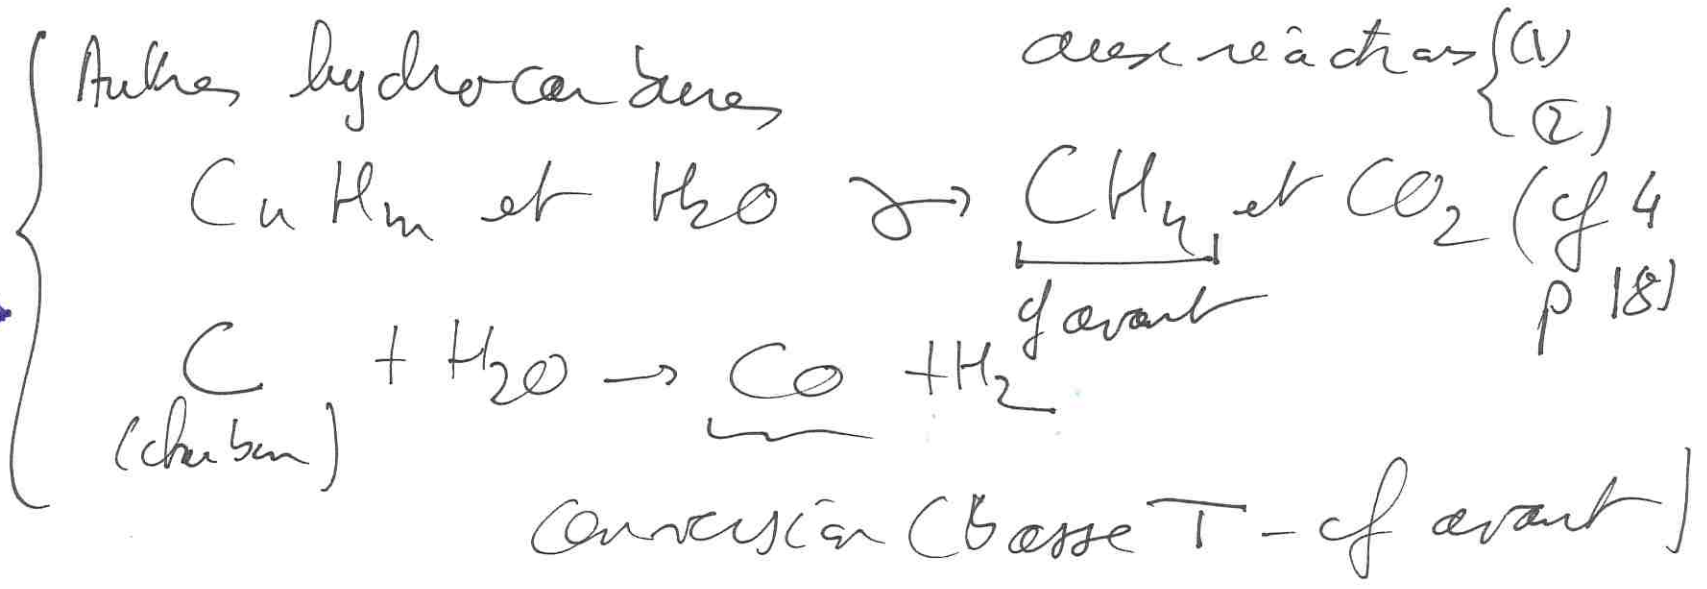 Autres hydrocarbures
deux réactions { (1)
(2)
CnHm et H2O → CH4 et CO2 (cf 4
p 18)
cf avant
C + H2O → CO + H2
(charbon)
conversion (basse T - cf avant)